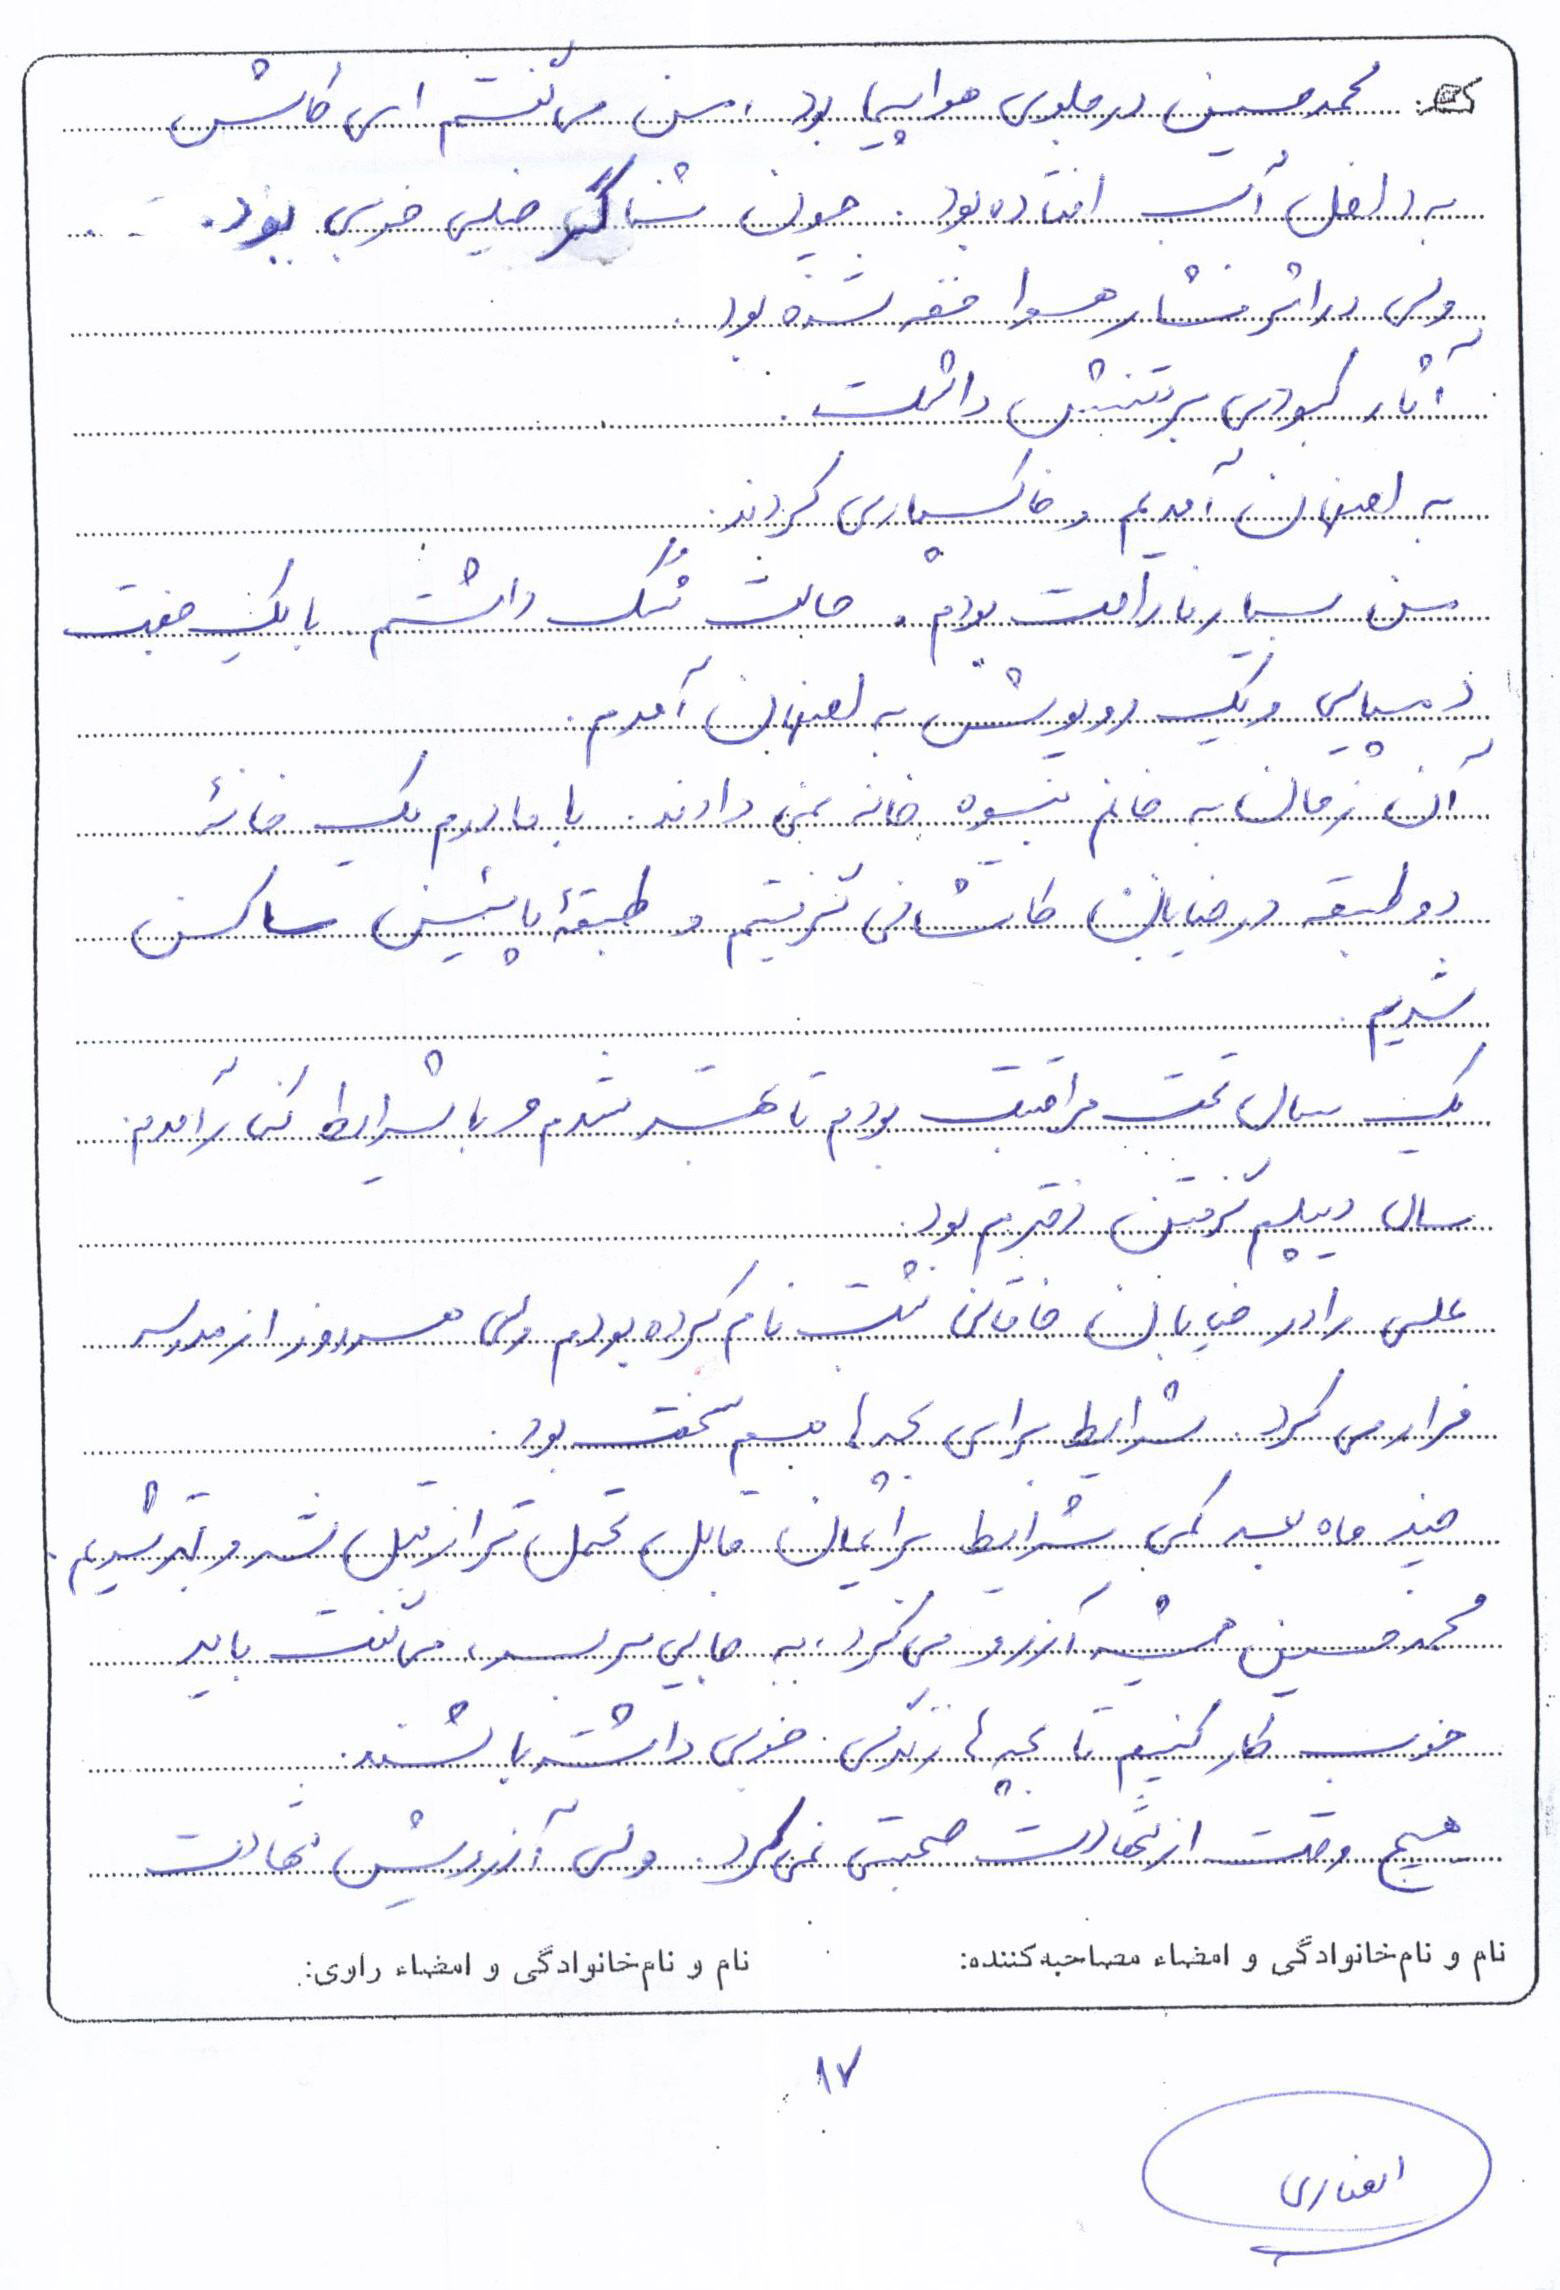 محمدحسین در جلوی هواپیما بود، من می‌گفتم ای کاش
به داخل آب افتاده بود. چون شناگر خیلی خوبی بود.
ولی در اثر فشار هوا خفه شده بود.
آثار کبودی بر تنش داشت.
به اصفهان آمدیم و خاکسپاری کردند.
من بسیار ناراحت بودم. حالت شُک داشتم با یک جفت
دمپایی و یک روپوش به اصفهان آمدم.
آن زمان به خانم بیوه خانه نمی دادند. با مادرم یک خانهٔ
دو طبقه در خیابان کاشانی گرفتیم و طبقهٔ پائین ساکن
شدیم.
یک سال تحت مراقبت بودم تا بهتر شدم و با شرایط کنار آمدم.
سال دیپلم گرفتن دخترم بود.
علی را در خیابان خاقانی ثبت نام کرده بودم ولی هر روز از مدرسه
فرار می کرد. شرایط برای بچه‌ها هم سخت بود.
چند ماه بعد کمی شرایط برایمان قابل تحمل تر از قبل شد و بهتر شدیم.
محمدحسین همیشه آرزو می کرد، به جایی برسد، می گفت باید
خوب کار کنیم تا بچه‌ها زندگی خوبی داشته باشند.
هیچ وقت از شهادت صحبتی نمی‌کرد. ولی آرزویش شهادت
نام و نام‌خانوادگی و امضاء مصاحبه‌کننده: نام و نام‌خانوادگی و امضاء راوی:
۱۷
انصاری